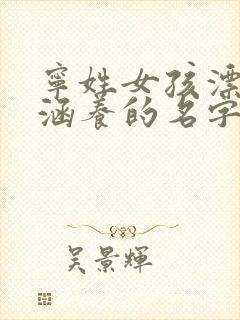 寧姓女孩漂
涵養的名字
吳景輝